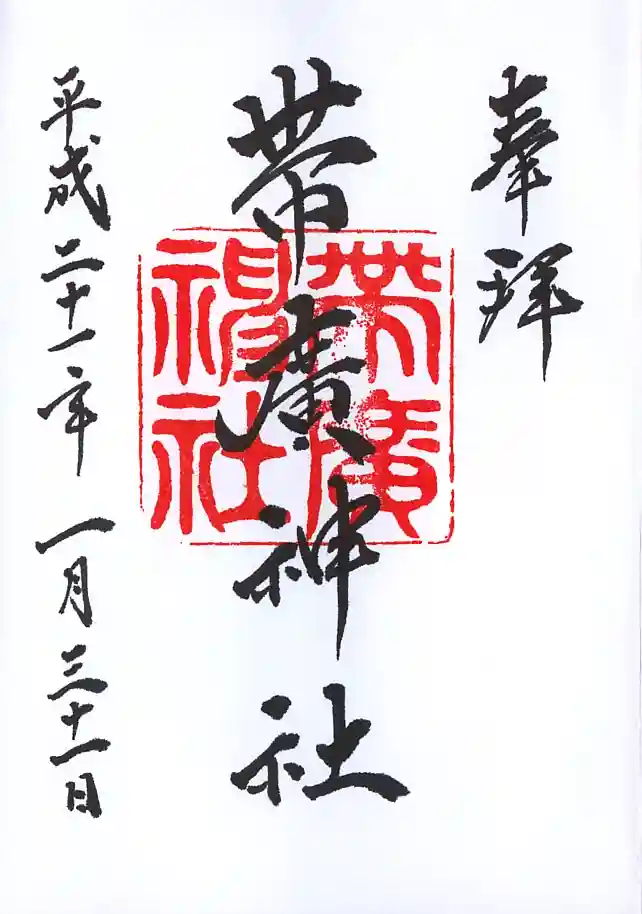 奉拜
帯廣神社
帯廣神社
平成二十一年一月三十一日